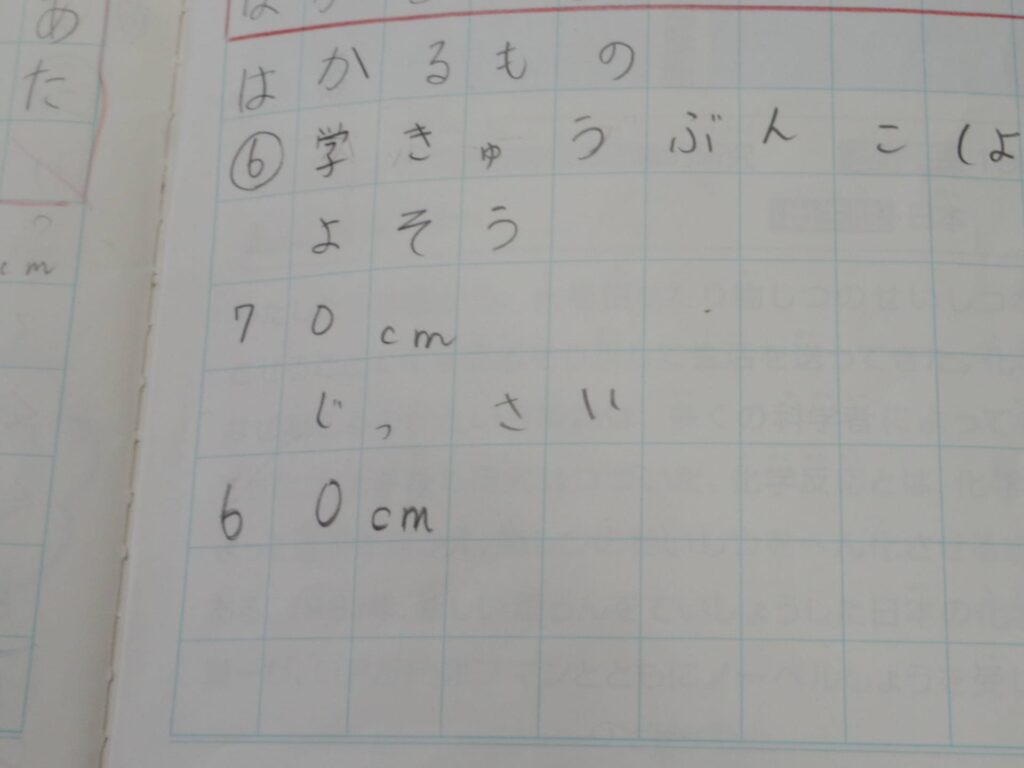 あ
た
cm
はかるもの
⑥学きゅうぶんこ(よ
よそう
70cm
じっさい
60cm